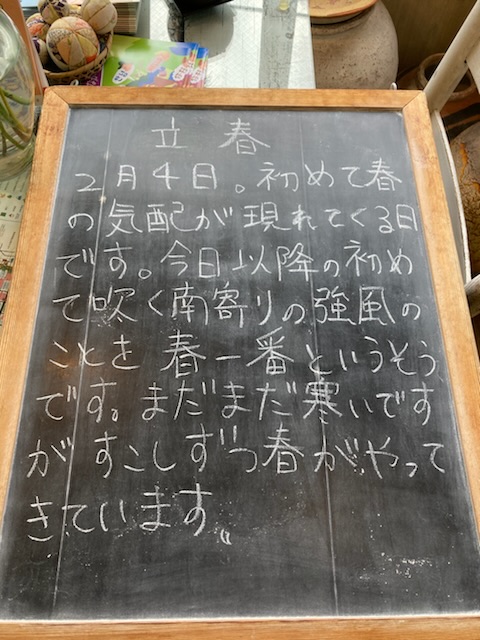 立春
2月4日。初めて春
の気配が現れてくる日
です。今日以降の初め
て吹く南寄りの強風の
ことを春一番というそう
です。まだまだ寒いです
がすこしずつ春がやって
きています。